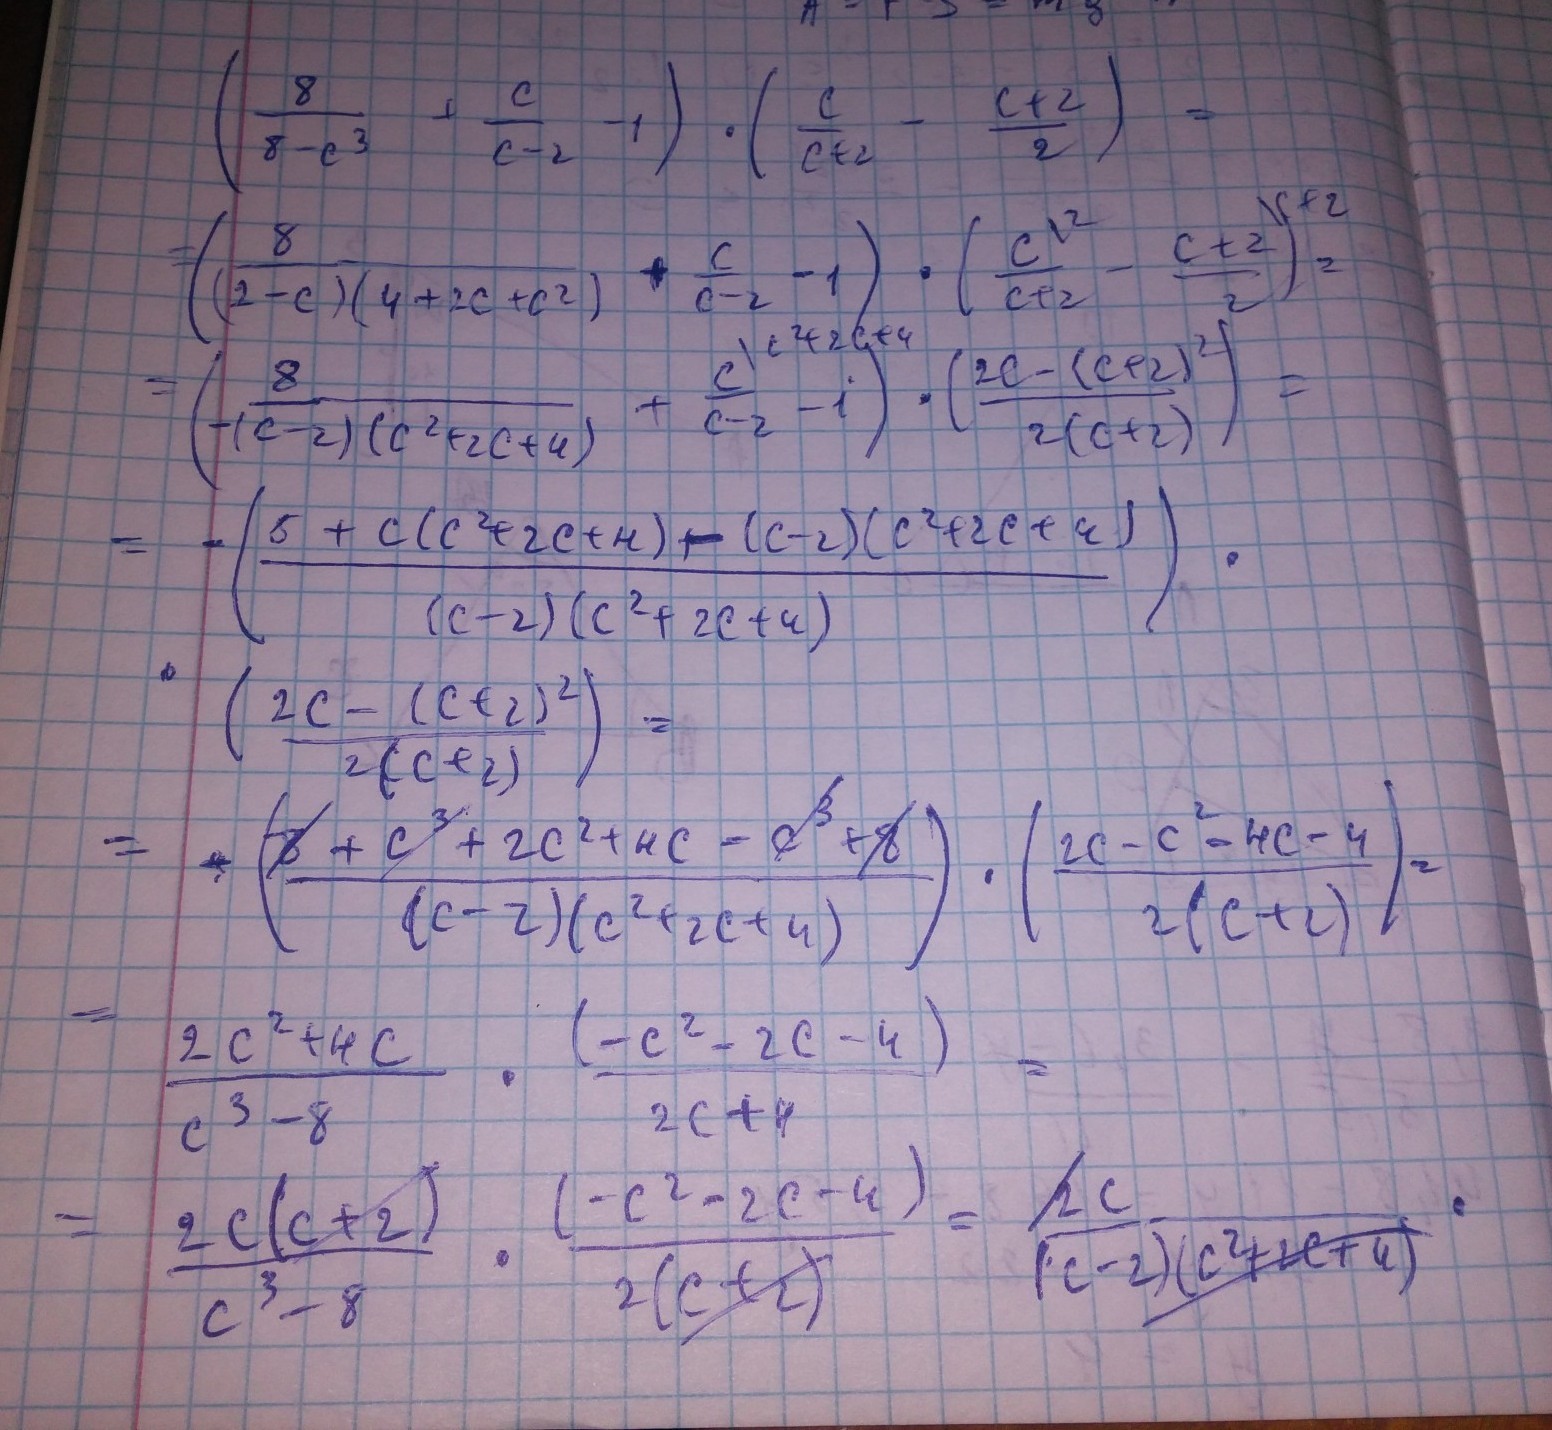 ( 8/(8-c³) + c/(c-2) - 1 ) · ( c/(c+2) - (c+2)/2 ) =
= ( 8/((2-c)(4+2c+c²)) + c/(c-2) - 1 ) · ( c\²/(c+2) - (c+2)\ᶜ⁺²/2 ) =
= ( 8/(-(c-2)(c²+2c+4)) + c\ᶜ²⁺²ᶜ⁺⁴/(c-2) - 1 ) · ( (2c-(c+2)²)/(2(c+2)) ) =
= - ( (8 + c(c²+2c+4) - (c-2)(c²+2c+4))/((c-2)(c²+2c+4)) ) ·
· ( (2c - (c+2)²)/(2(c+2)) ) =
= ( (-8 + c³ + 2c² + 4c - c³ + 8)/((c-2)(c²+2c+4)) ) · ( (2c-c²-4c-4)/(2(c+2)) ) =
= (2c²+4c)/(c³-8) · (-c²-2c-4)/(2c+4) =
= 2c(c+2)/(c³-8) · (-c²-2c-4)/(2(c+2)) = 2c/((c-2)(c²+2c+4)) ·